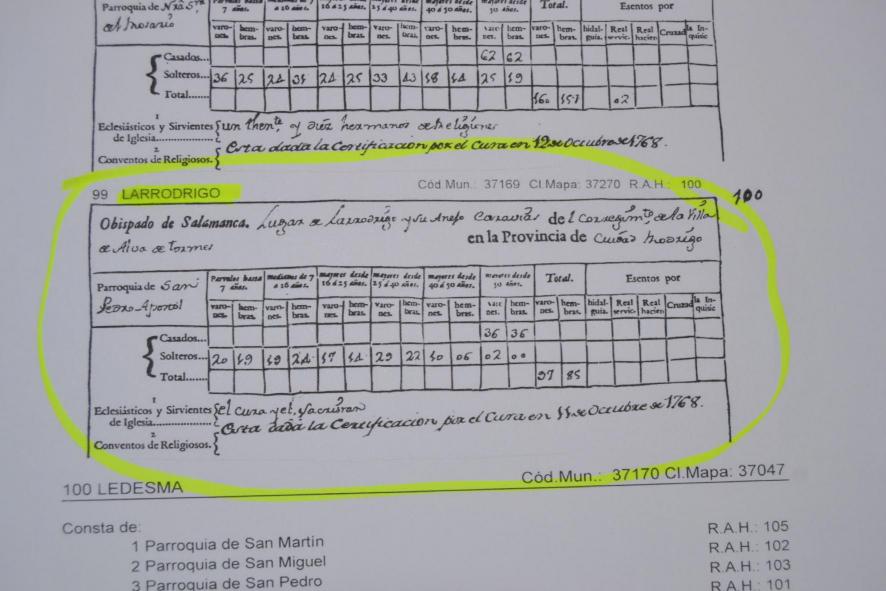 Parroquia de Nra Sra varones. hembras. varones. hembras. varones. hembras. varones. hembras. varones. hembras. varones. hembras. Total. Esentos por
del Rosario varones. hembras. hidalguia. Real servic. Real hacien Cruzad la Inquisic
Casados... 62 62
Solteros... 36 25 24 31 24 25 33 13 18 14 25 19
Total....... 160 157 02
Eclesiásticos y Sirvientes de Iglesia. un y diez hermanos de Religiones
Conventos de Religiosos. Esta dada la Certificacion por el Cura en 12 de Octubre de 1768.
99 LARRODRIGO Cód.Mun.: 37169 Cl.Mapa: 37270 R.A.H.: 100
100
Obispado de Salamanca. Lugar de Larrodrigo y su Anejo de l Corregimto de la Villa
de Alva de tormes en la Provincia de Ciudad Rodrigo
Parroquia de San Parvulos hasta 7 años. medianos de 7 a 16 años. mayores desde 16 á 25 años. mayores desde 25 á 40 años. mayores desde 40 á 50 años. mayores desde 50 años. Total. Esentos por
Pedro Apostol varones. hembras. varones. hembras. varones. hembras. varones. hembras. varones. hembras. varones. hembras. varones. hembras. hidalguia. Real servic. Real hacien Cruzad la Inquisic
Casados... 36 36
Solteros... 20 19 19 24 17 14 29 22 10 06 02 00
Total....... 97 85
Eclesiásticos y Sirvientes de Iglesia. el cura y el sacristan
Conventos de Religiosos. Esta dada la Certificacion por el Cura en 11 de Octubre de 1768.
100 LEDESMA Cód.Mun.: 37170 Cl.Mapa: 37047
Consta de: R.A.H.: 105
1 Parroquia de San Martin R.A.H.: 102
2 Parroquia de San Miguel R.A.H.: 103
3 Parroquia de San Pedro R.A.H.: 101